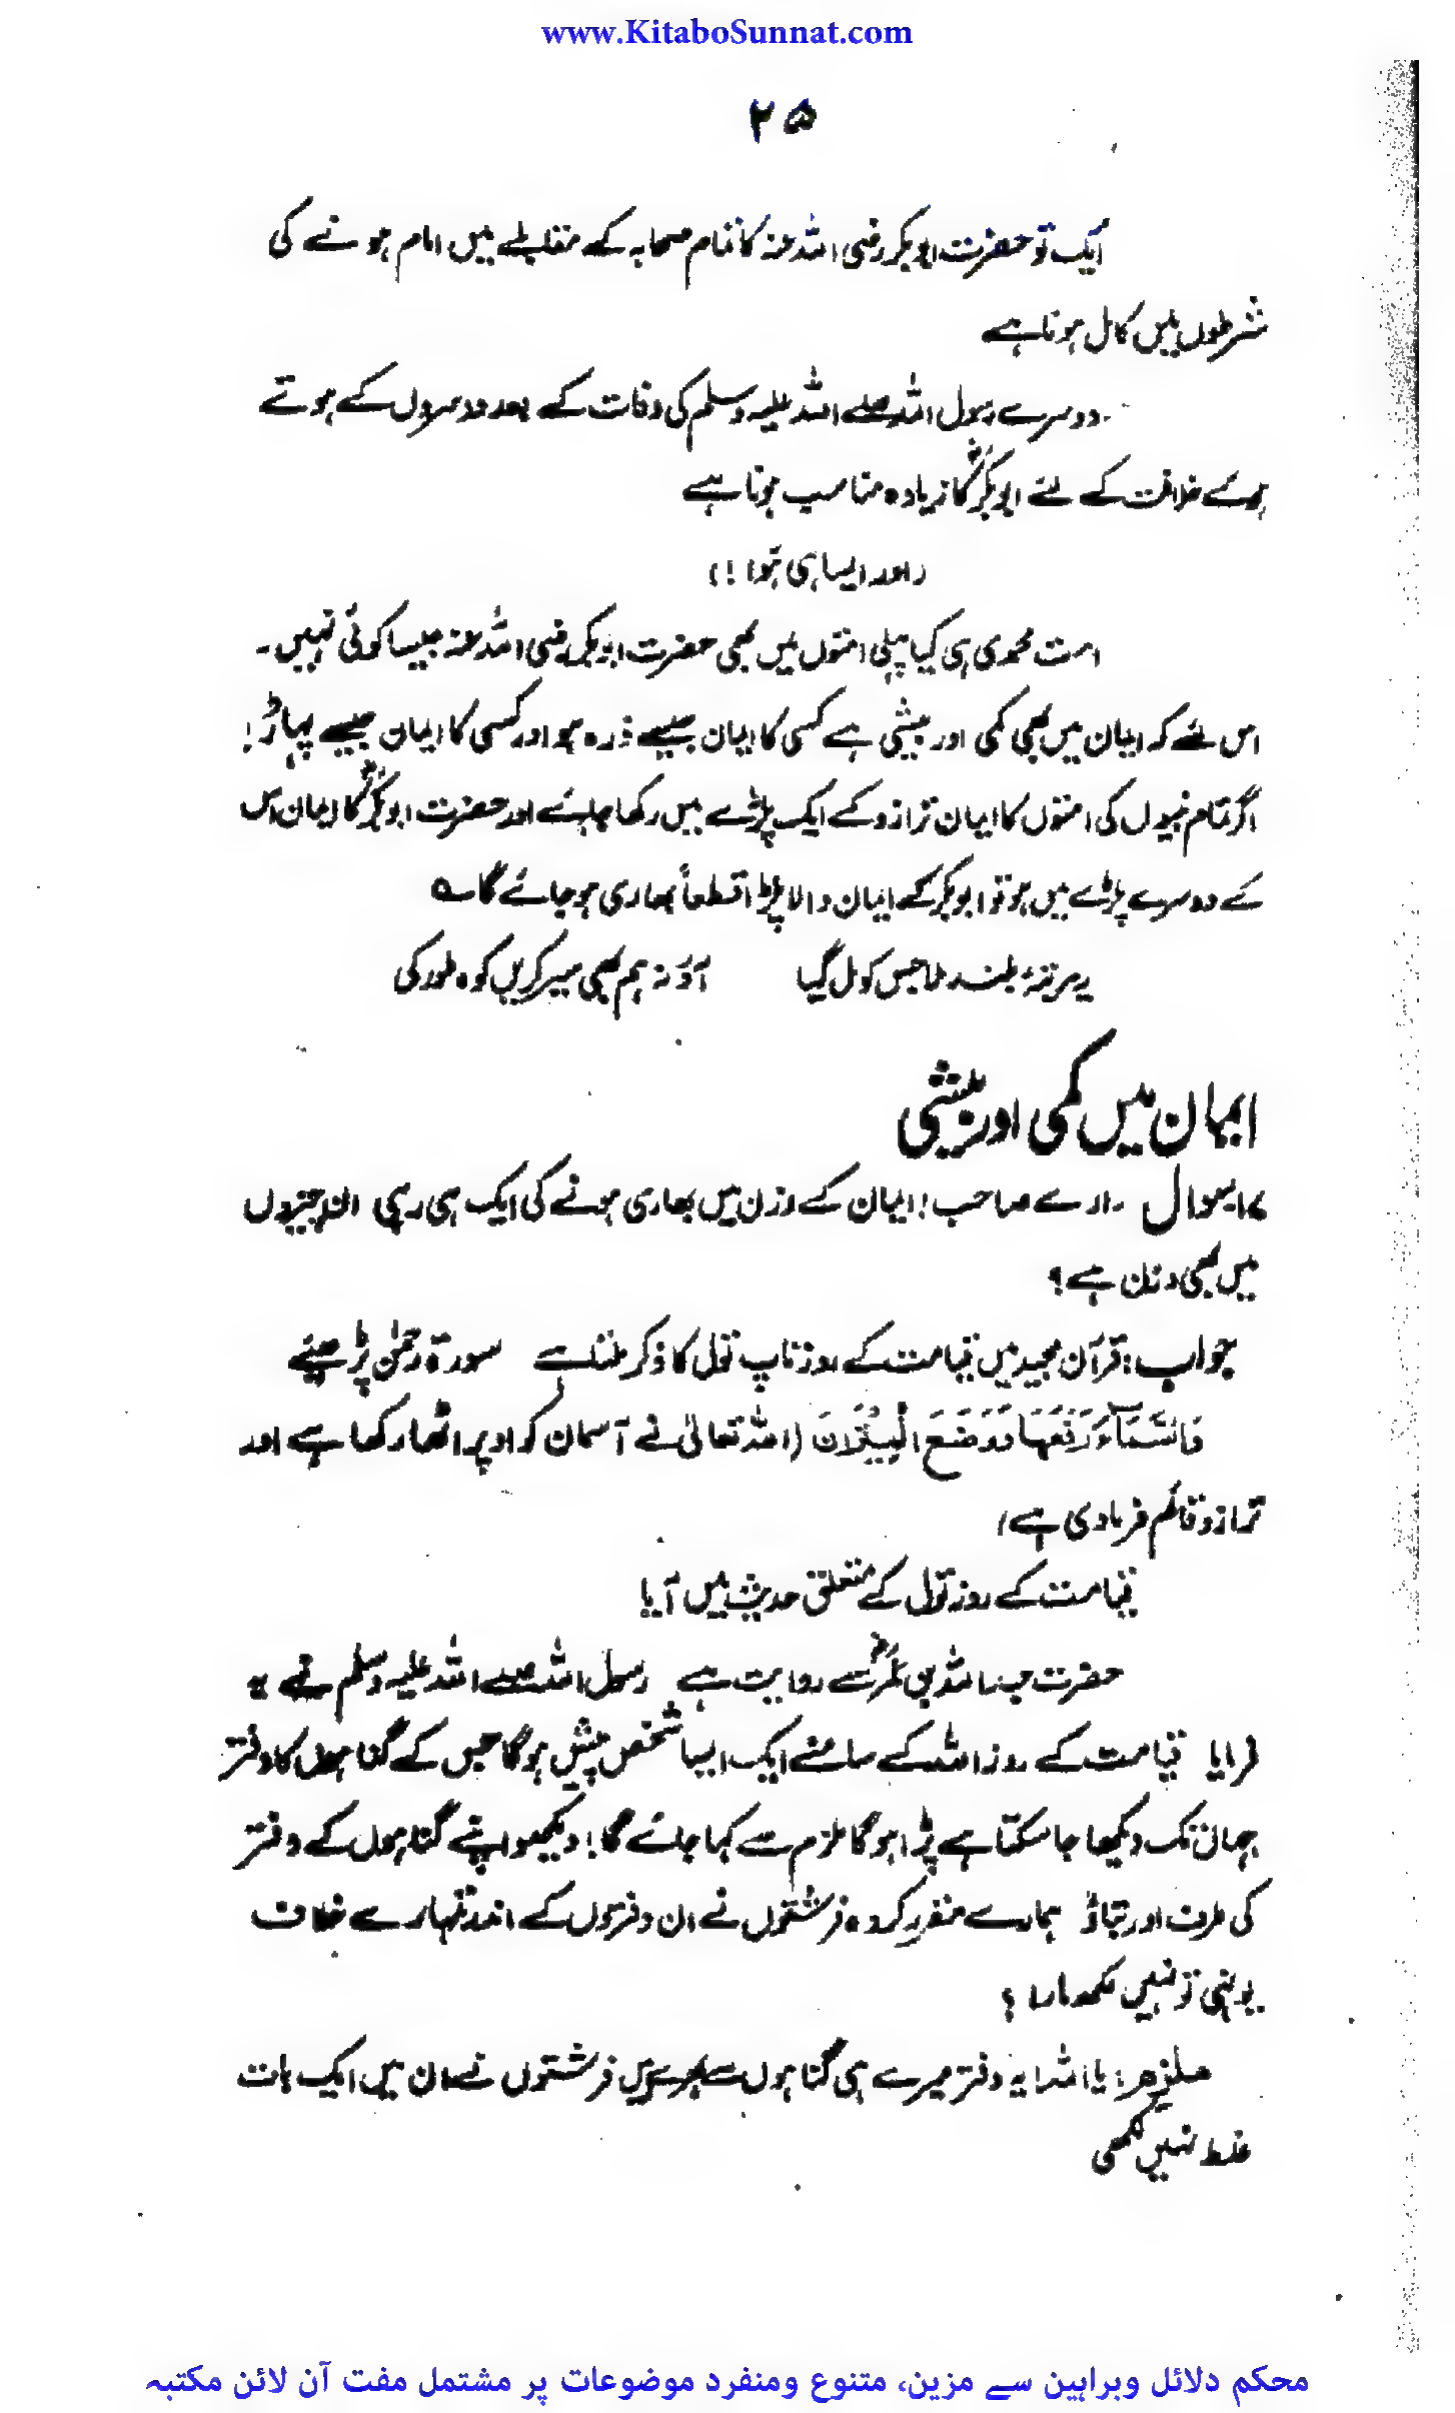 www.KitaboSunnat.com
۲۵
ایک تو حضرت ابوبکر رضی اللہ عنہ کا تمام صحابہ کے مقابلے میں امام ہونے کی
شرطوں میں کامل ہونا ہے
دوسرے رسول اللہ صلے اللہ علیہ وسلم کی وفات کے بعد دوسروں کے ہوتے
ہوئے خلافت کے لئے ابوبکرؓ کا زیادہ مناسب ہونا ہے
(اور ایسا ہی ہوا!)
امت محمدی ہی کیا پہلی امتوں میں بھی حضرت ابوبکر رضی اللہ عنہ جیسا کوئی نہیں۔
اس لئے کہ ایمان میں بھی کمی اور بیشی ہے کسی کا ایمان جیسے ذرہ ہو اور کسی کا ایمان جیسے پہاڑ!
اگر تمام نبیوں کی امتوں کا ایمان ترازو کے ایک پلڑے میں رکھا جائے اور حضرت ابوبکرؓ کا ایمان اس
کے دوسرے پلڑے میں ہو تو ابوبکر کے ایمان والا پلڑا قطعاً بھاری ہو جائے گا ؎
یہ مرتبۂ بلند ملا جس کو مل گیا آؤ نہ ہم بھی سیر کریں کوہ طور کی
ایمان میں کمی اور بیشی
۱۷ سوال ۔ ارے صاحب! ایمان کے وزن میں بھاری ہونے کی ایک ہی رہی ان چیزوں
میں بھی وزن ہے؟
جواب: قرآن مجید میں قیامت کے روز ناپ تول کا ذکر ملتا ہے سورۃ رحمٰن پڑھیئے
وَالسَّمَآءَ رَفَعَهَا وَوَضَعَ الْمِيْزَانَ (اللہ تعالیٰ نے آسمان کو اوپر اٹھا رکھا ہے اور
ترازو قائم فرما دی ہے)
قیامت کے روز تول کے متعلق حدیث میں آیا
حضرت عبداللہ بن عمرؓ سے روایت ہے رسول اللہ صلے اللہ علیہ وسلم نے
فرمایا قیامت کے روز اللہ کے سامنے ایک ایسا شخص پیش ہوگا جس کے گناہوں کا دفتر
جہاں تک دیکھا جا سکتا ہے پڑا ہوگا ملزم سے کہا جائے گا! دیکھو اپنے گناہوں کے دفتر
کی طرف اور بتاؤ ہمارے مقرر کردہ فرشتوں نے ان دفتروں کے اندر تمہارے خلاف
یونہی تو نہیں لکھ مارا ؟
ملزم: یا اللہ! یہ دفتر میرے ہی گناہوں سے بھرے ہیں فرشتوں نے ان میں ایک بات
غلط نہیں لکھی
محکم دلائل وبراہین سے مزین، متنوع ومنفرد موضوعات پر مشتمل مفت آن لائن مکتبہ